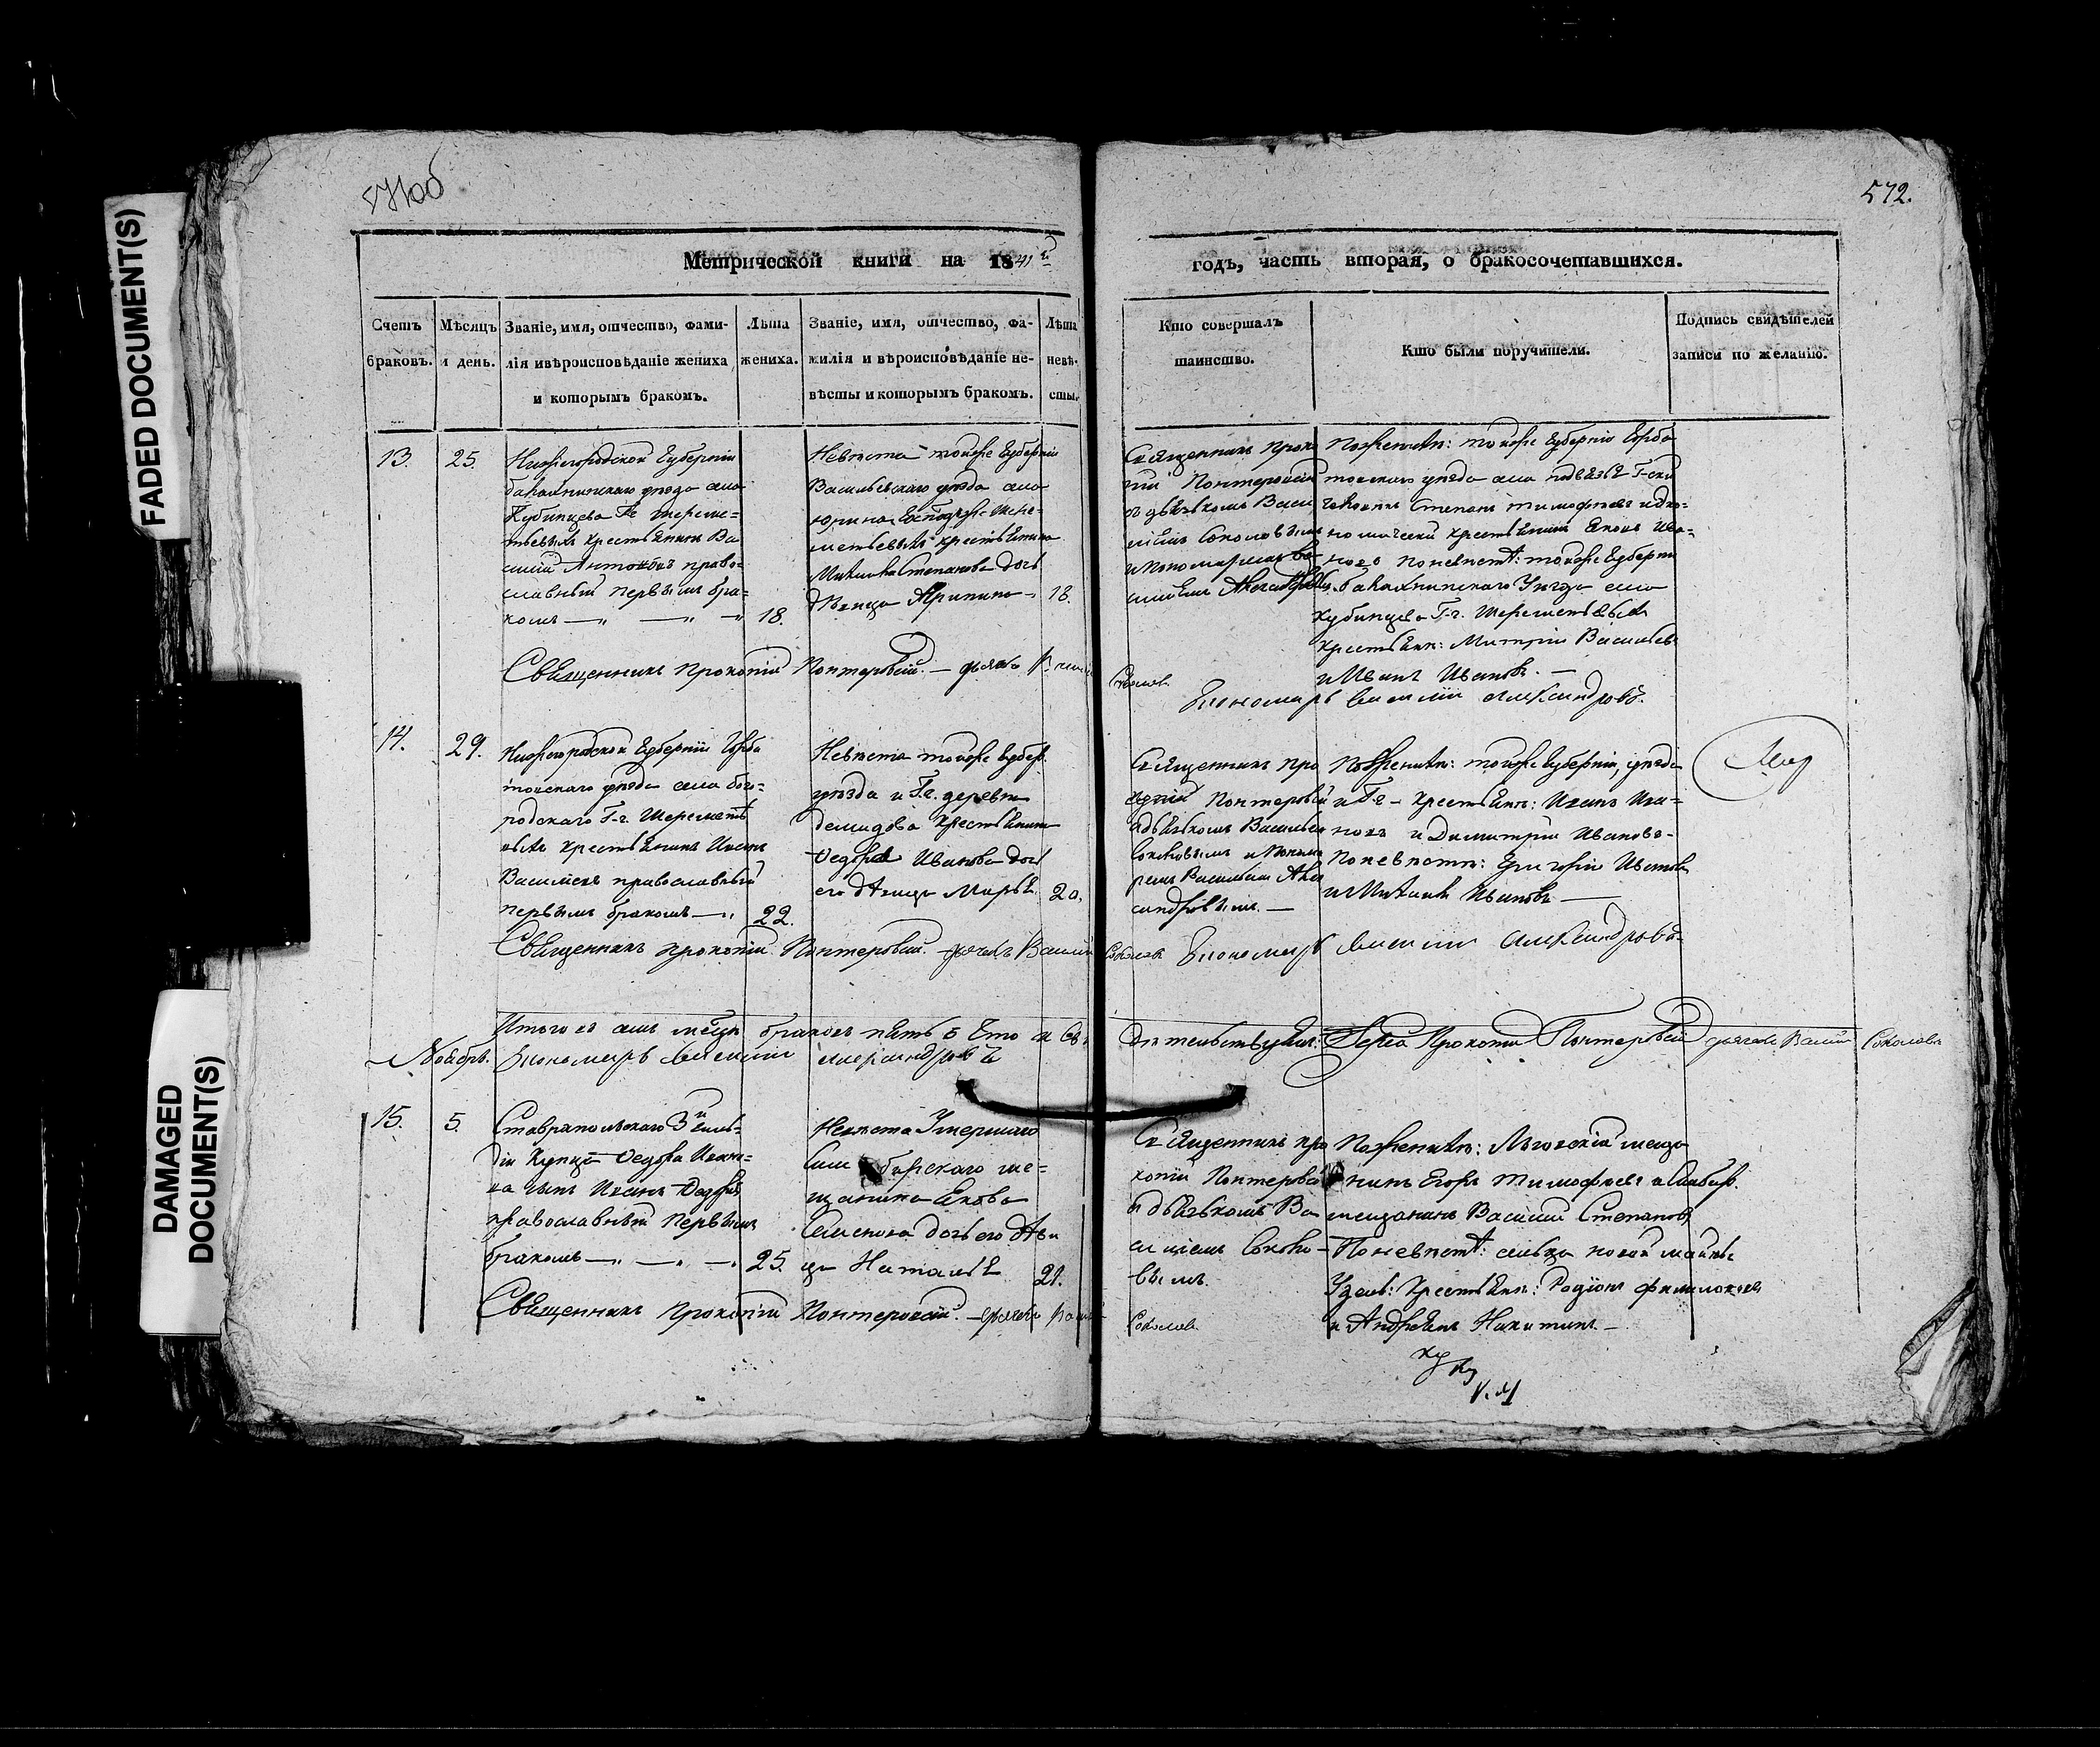 571об
572.
Метрической книги на 1841й
годъ, часть вторая, о бракосочетавшихся.
Счетъ браковъ.
Мѣсяцъ и день.
Званіе, имя, отчество, фами-
лія ивѣроисповѣданіе жениха
и которымъ бракомъ.
Лѣта
жениха.
Званіе, имя, отчество, фа-
милія и вѣроисповѣданіе не-
вѣсты и которымъ бракомъ.
Лѣта
невѣ-
сты.
Кто совершалъ
таинство.
Кто были поручители.
Подпись свидѣтелей
записи по желанію.
13.
25.
Нижегородской Губерніи
балахнинскаго уѣзда села
Кубинцева Гг. Шереме-
тьевыхъ крестьянинъ Ва
силій Антоновъ право-
славный первымъ бра-
комъ — „ — „ — „
18.
Невѣста тойже Губерніи
Васильевскаго уѣзда села
Юрина Господъ Шере-
метьевыхъ крестьянина
Михаила Степанова дочь
дѣвица
18.
Священникъ Проко
пій Понтеровскій
съ дьячькомъ Васи
ліемъ Соколовымъ
и пономаремъ Ва
силіемъ Александровымъ
По женихѣ: тойже Губерніи Горба
товскаго уѣзда села
Степанъ Тимофѣевъ
крестьянинъ Ива-
новъ По невѣстѣ: тойже Губерніи
балахнинскаго Уѣзда села
Кубинцева Г.г. Шереметьевыхъ
крестьян: Митрій Васильевъ
и Иванъ Ивановъ. —
Священникъ Прокопій Понтеровскій. —
Соколовъ
Пономарь Василій Александровъ.
14.
29.
Нижегородской Губерніи Горба
товскаго уѣзда села бого-
родскаго Г-г. Шереметь
евыхъ крестьянинъ Иванъ
Васильевъ православный
первымъ бракомъ — „
22.
Невѣста тойже Губер.
уѣзда и Г.г. деревни
Демидова крестьянина
Ѳедора Иванова дочь
его дѣвица Марья
20.
Священникъ Про
копій Понтеровскій
съ дьячькомъ Васильемъ
Соколовымъ и Понома
ремъ Васильемъ Алек
сандровымъ. —
По женихѣ: тойже Губерніи, уѣзда
и Г.г. — крестьян: Иванъ Ива-
новъ и Димитрій Ивановъ —
По невѣстѣ: Григорій Ивановъ
и Михаилъ Ивановъ —
Священникъ Прокопій Понтеровскій. — дьячекъ Василій Соколовъ Пономарь Василій Александровъ.
Итого въ семъ мѣсяцѣ браковъ пять 5 Что и Сви
дѣтельствуемъ: Іерей Прокопій Понтеровскій дьячекъ Василій Соколовъ
Пономарь Василій Александровъ
Ноябрь.
15.
5.
Ставропольскаго 3й гиль-
діи Купца Ѳедора Ивано-
ва сынъ Иванъ Ѳедоровъ
православный первымъ
бракомъ — „ — „ — „
25.
Невѣста Умершаго
Симбирскаго ме-
щанина Якова
Семенова дочь его дѣви
ца Наталья
21.
Священникъ Про
копій Понтеровскій
съ дьячькомъ Ва
силіемъ Соколо-
вымъ.
По женихѣ: меща
нинъ Егоръ Тимофѣевъ и Симбир.
мещанинъ Василій Степановъ
По невѣстѣ: сельца новой майны
Удель: крестьян: Родіонъ
и Андреянъ Никитинъ —
Священникъ Прокопій Понтеровскій. — дьячекъ
Соколовъ